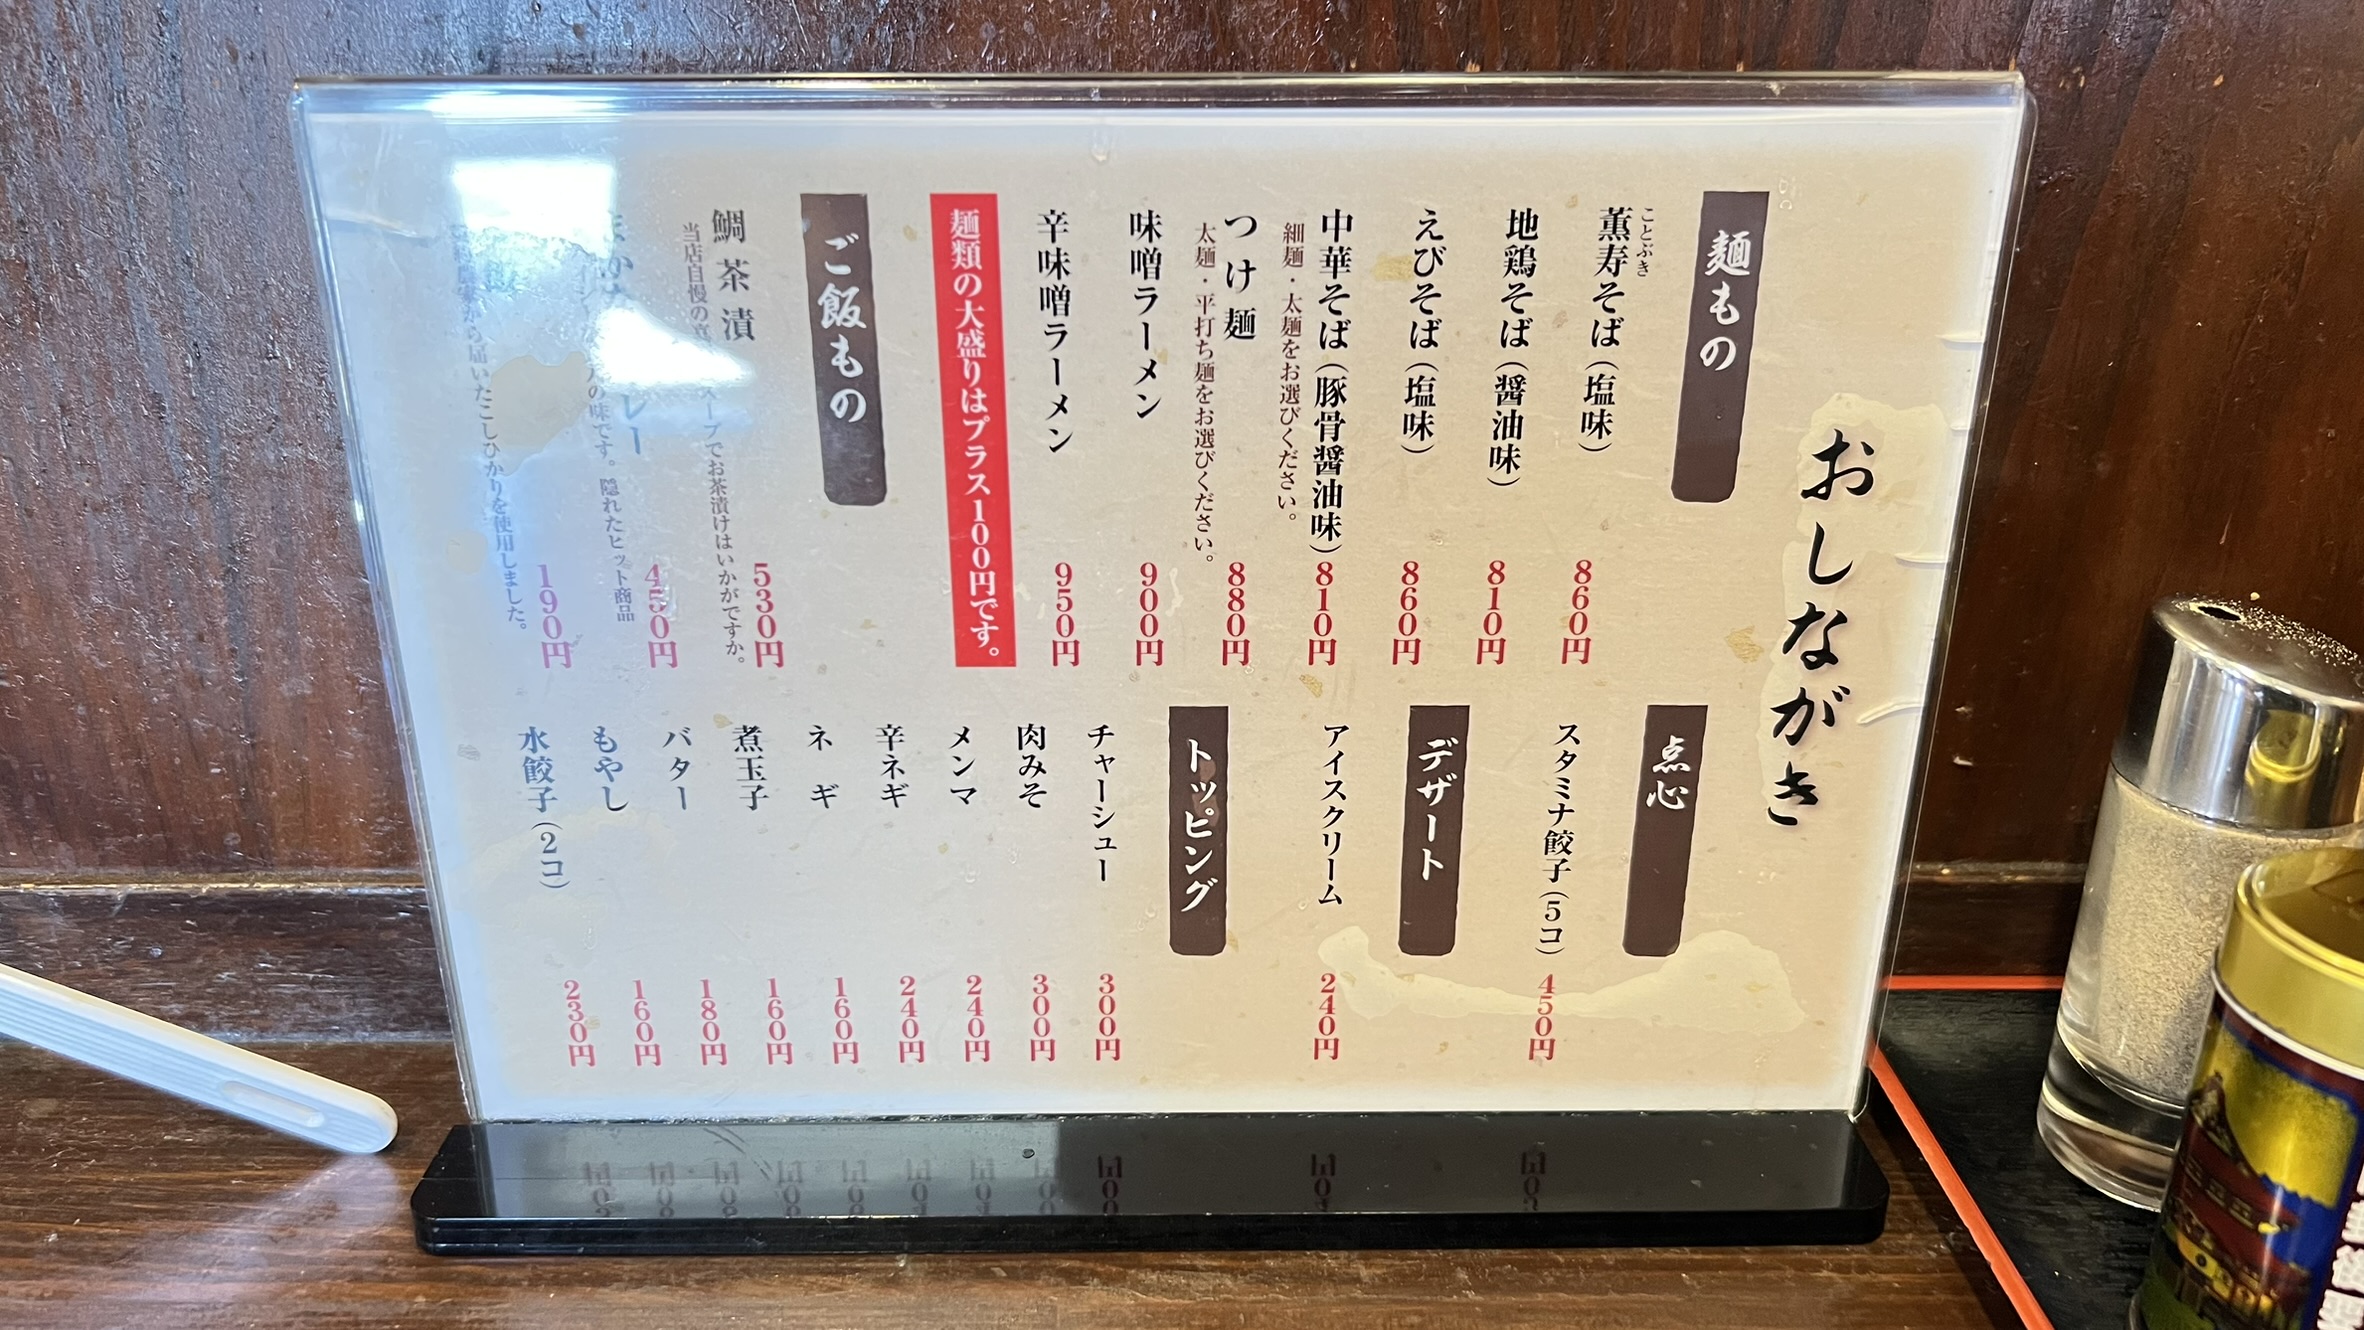 おしながき
麺もの
ことぶき
薫寿そば（塩味）
860円
地鶏そば（醤油味）
810円
えびそば（塩味）
860円
中華そば（豚骨醤油味）
810円
細麺・太麺をお選びください。
つけ麺
880円
太麺・平打ち麺をお選びください。
味噌ラーメン
900円
辛味噌ラーメン
950円
麺類の大盛りはプラス100円です。
ご飯もの
鯛茶漬
530円
当店自慢の スープでお茶漬けはいかがですか。
レー
450円
の味です。隠れたヒット商品
190円
から届いたこしひかりを使用しました。
点心
スタミナ餃子（5コ）
450円
デザート
アイスクリーム
240円
トッピング
チャーシュー
300円
肉みそ
300円
メンマ
240円
辛ネギ
240円
ネギ
160円
煮玉子
160円
バター
180円
もやし
160円
水餃子（2コ）
230円